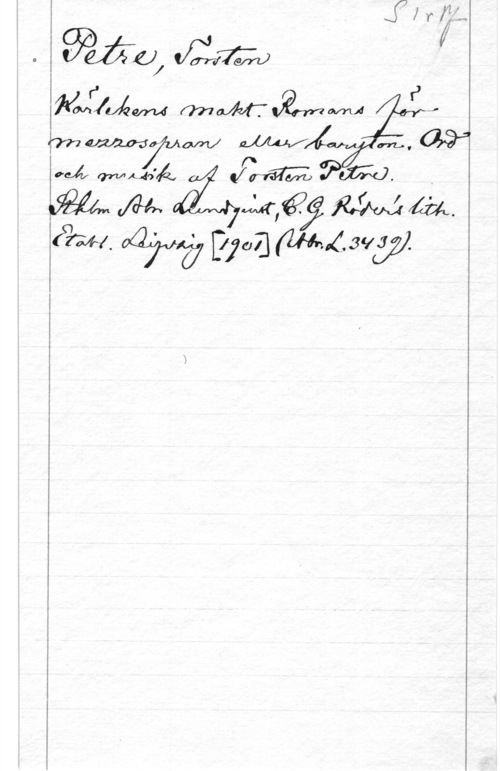 Petre, Torsten
Kärlekens makt. Romans för
mezzosopran eller baryton. Ord
och musik af Torsten Petre.
Sthlm Abr. Lundquist, C. G. Röder's lith.
Etabl. Leipzig [1901] (Abr. L. 3439).